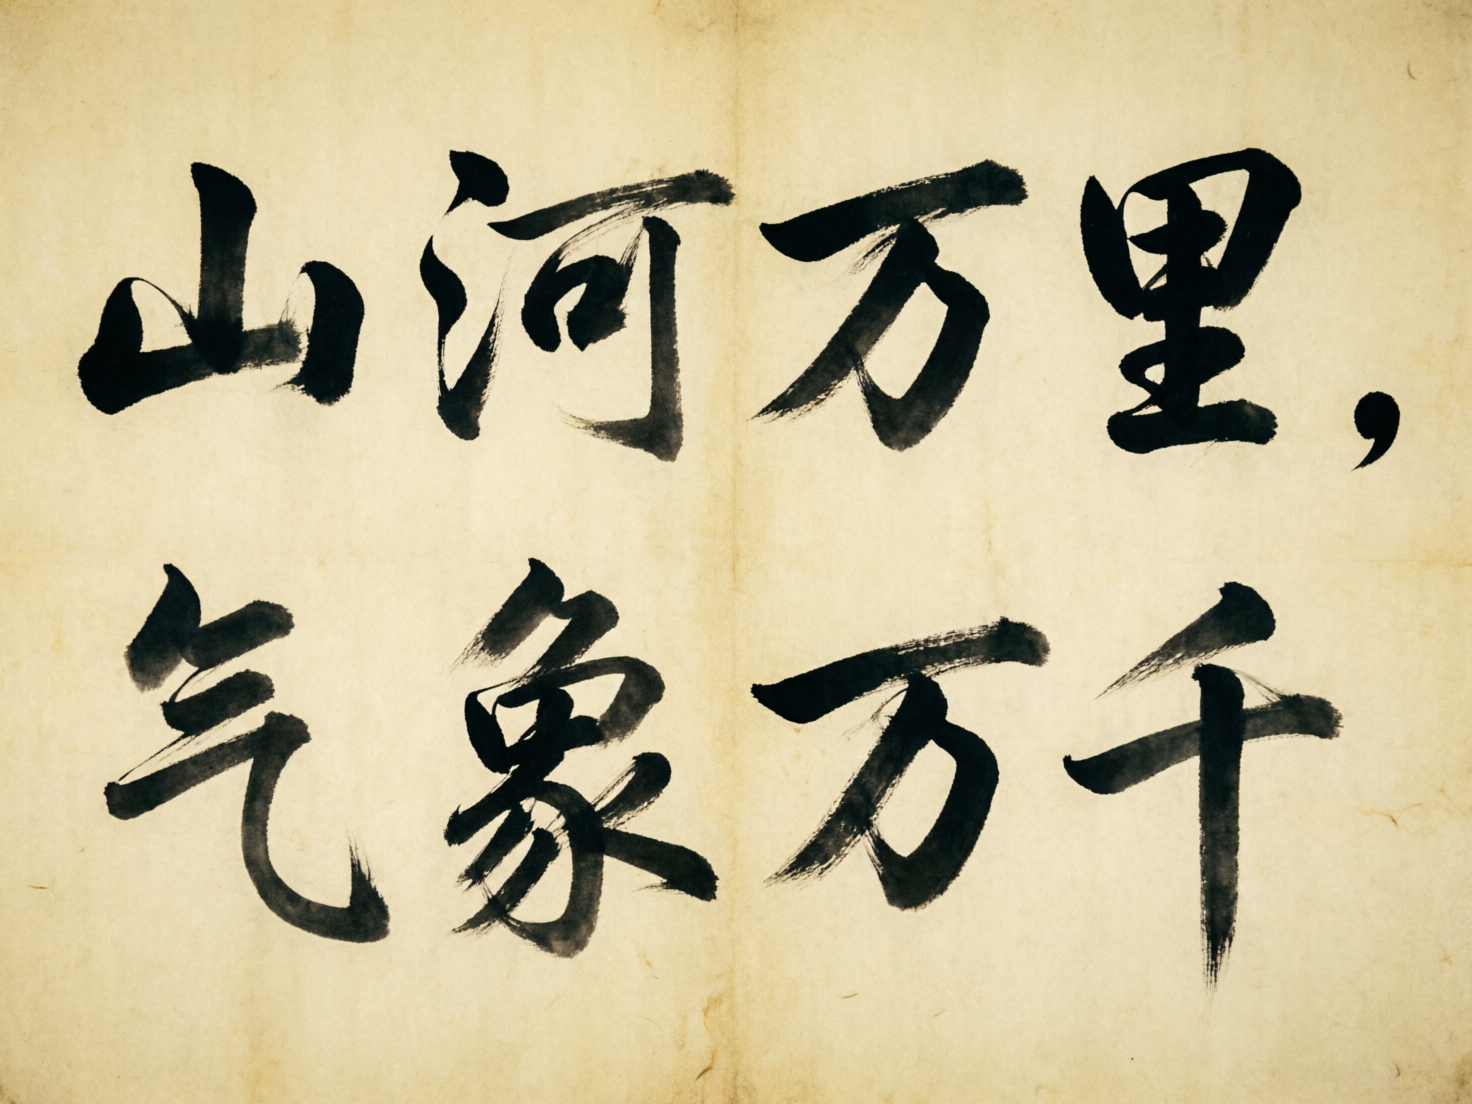 山河万里，
气象万千